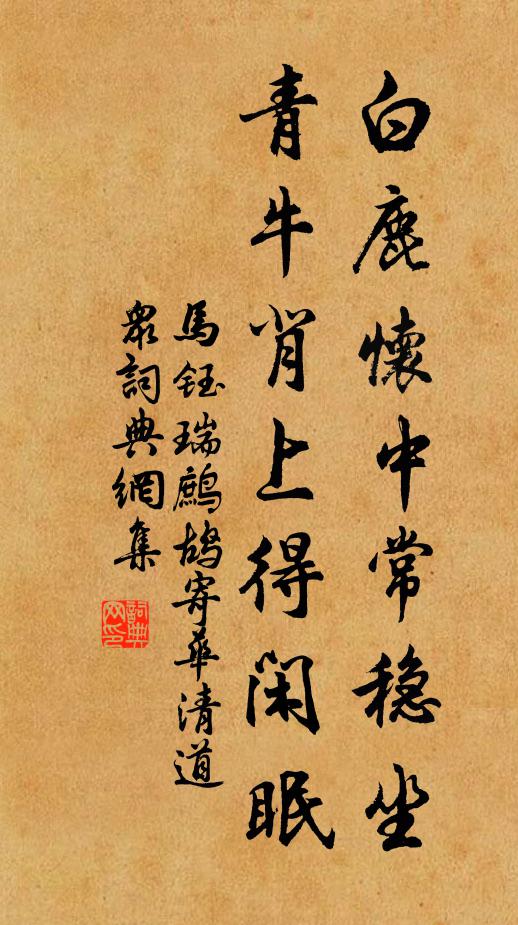 白鹿懷中常稳坐
青牛背上得闲眠
馬鈺瑞鷓鴣寄華清道
眾詞典網集
詞典网印